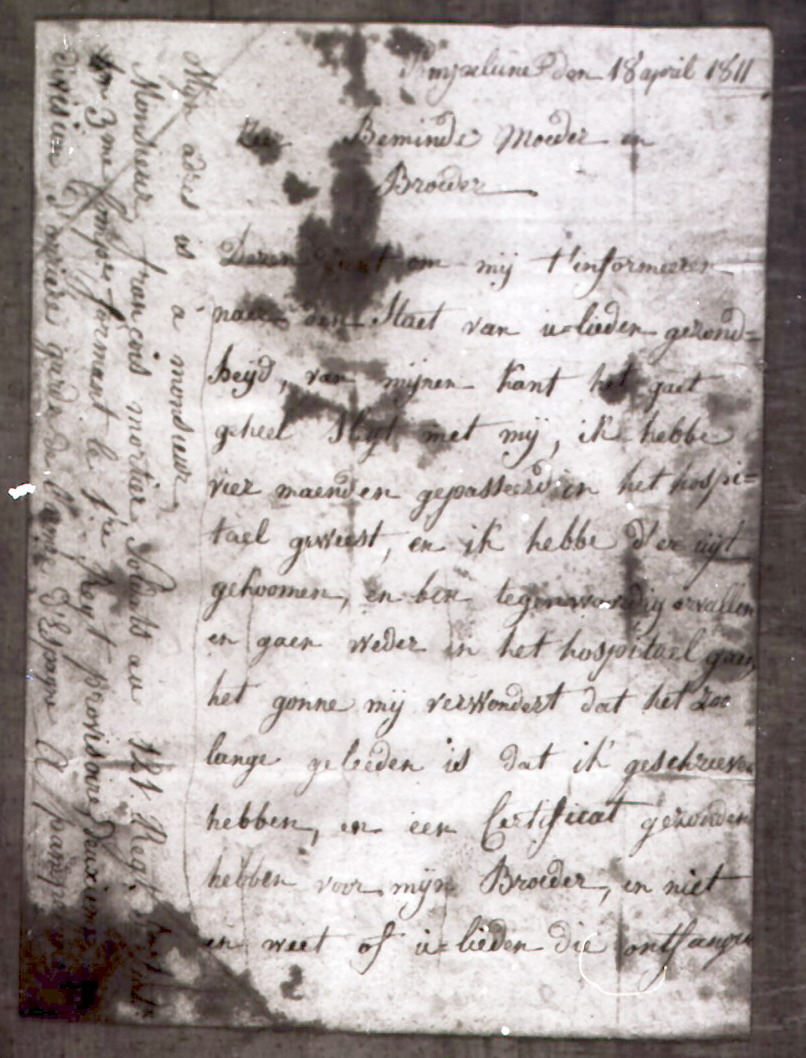 den 18 april 1811
Zeer Beminde Moeder en
Broeder
Dezen dient om mij t'informeeren
naer den Staet van u=lieden gezond=
heijd, van mijnen kant het gaet
geheel slegt met mij, ik hebbe
vier maenden gepasseerd in het hospi=
tael geweest, en ik hebbe d'er uijt
gekoomen, en ben tegenwoordig ervallen
en gaen weder in het hospitael gaen,
het gonne mij verwondert dat het zoo
lange geleeden is dat ik geschreeven
hebben, en een Certificat gezonden
hebben voor mijn Broeder, en niet
en weet of u=lieden die ontfangen
Mijn adres is a monsieur
Monsieur françois mortier Soldats au 121. Regt.
3me formant le 1re Regt provisoire Deuxieme
division d'arriere garde de l'armé d'Espagne A